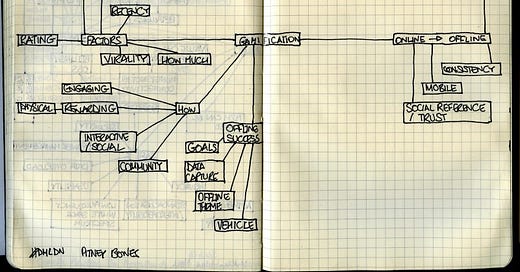 RECENCY
RATING
FACTORS
GAMIFICATION
ONLINE → OFFLINE
VIRALITY
HOW MUCH
CONSISTENCY
MOBILE
SOCIAL REFERENCE
/ TRUST
ENGAGING
PHYSICAL
REWARDING
HOW
INTERACTIVE
/ SOCIAL
COMMUNITY
OFFLINE
SUCCESS
GOALS
DATA
CAPTURE
OFFLINE
THEME
VEHICLE
#DHLDN
BONES